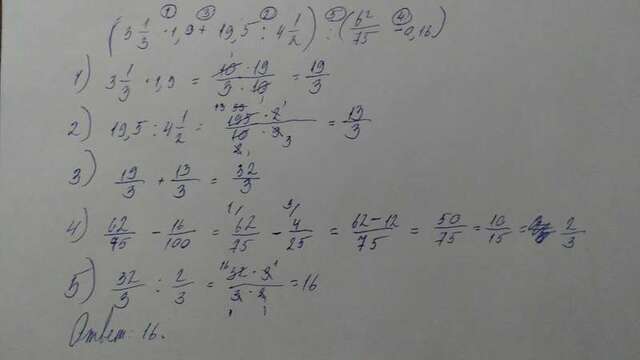 ① ③ ② ⑤ ④
(3 1/3 · 1,9 + 19,5 : 4 1/2) : (62/75 - 0,16)
1) 3 1/3 · 1,9 = 10 · 19 / 3 · 10 = 19/3
2) 19,5 : 4 1/2 = 195 · 2 / 10 · 9 = 13/3
3) 19/3 + 13/3 = 32/3
4) 62/75 - 16/100 = 62/75 - 4/25 = 62-12/75 = 50/75 = 10/15 = 2/3
5) 32/3 : 2/3 = 32 · 3 / 3 · 2 = 16
Ответ: 16.